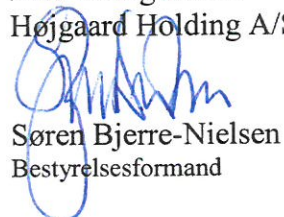 Højgaard Holding A/S
Søren Bjerre-Nielsen
Bestyrelsesformand